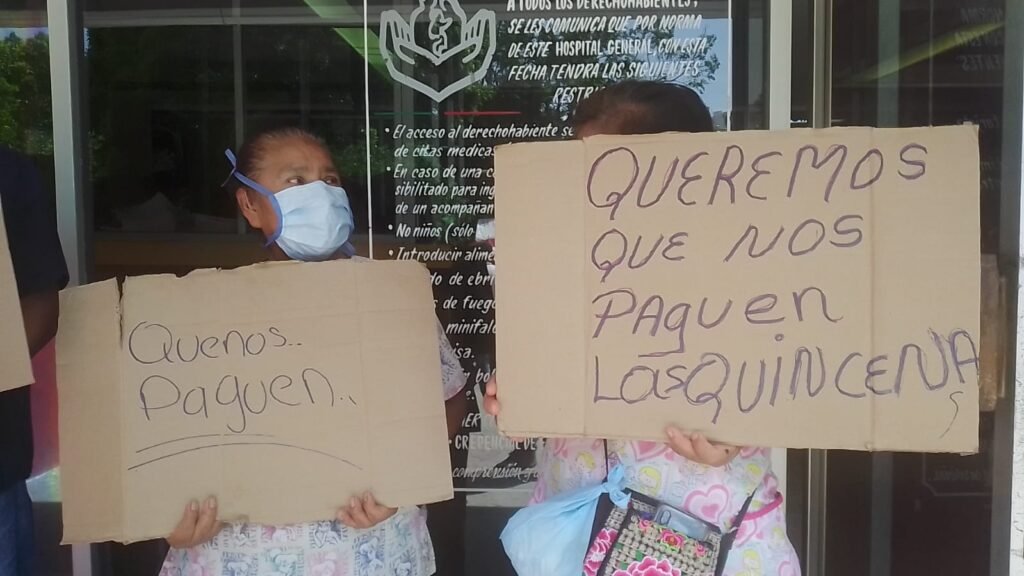 A TODOS LOS DERECHOHABIENTES,
SE LES COMUNICA QUE POR NORMA
DE ESTE HOSPITAL GENERAL CON ESTA
FECHA TENDRA LAS SIGUIENTES
• El acceso al derechohabiente se
de citas medicas
• En caso de una
sibilitado para
de un acompañan
• No niños (sólo
• Introducir
de
de fuego
CREDENCIAL DE
comprensión
Quenos..
Paguen..
QUEREMOS
QUE NOS
PAguen
LasQUINCENAS